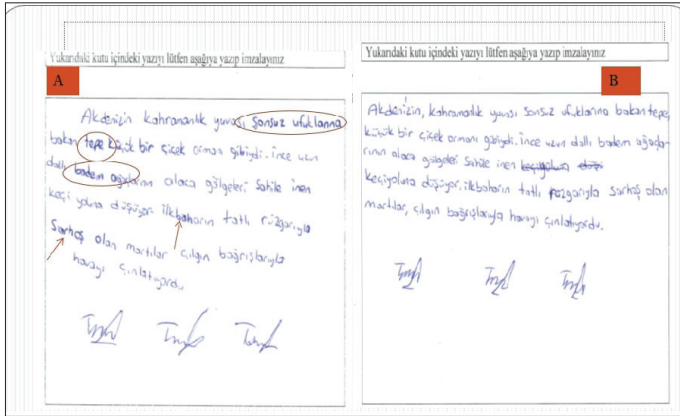 Yukarıdaki kutu içindeki yazıyı lütfen aşağıya yazıp imzalayınız
A
Akdenizin kahramanlık yuvası sonsuz ufuklarına
bakan tepe küçük bir çiçek ormanı gibiydi. İnce uzun
dallı badem ağaçlarının alaca gölgeleri sahile inen
keçi yoluna düşüyor. ilkbaharın tatlı rüzgarıyla
Sarhoş olan martılar çılgın bağrışlarıyla
havayı çınlatıyordu
Yukarıdaki kutu içindeki yazıyı lütfen aşağıya yazıp imzalayınız
B
Akdenizin, kahramanlık yuvası sonsuz ufuklarına bakan tepe,
küçük bir çiçek ormanı gibiydi. İnce uzun dallı badem ağaçla-
rının alaca gölgeleri sahile inen
keçiyoluna düşüyor, ilkbaharın tatlı rüzgarıyla sarhoş olan
martılar, çılgın bağrışlarıyla havayı çınlatıyordu.